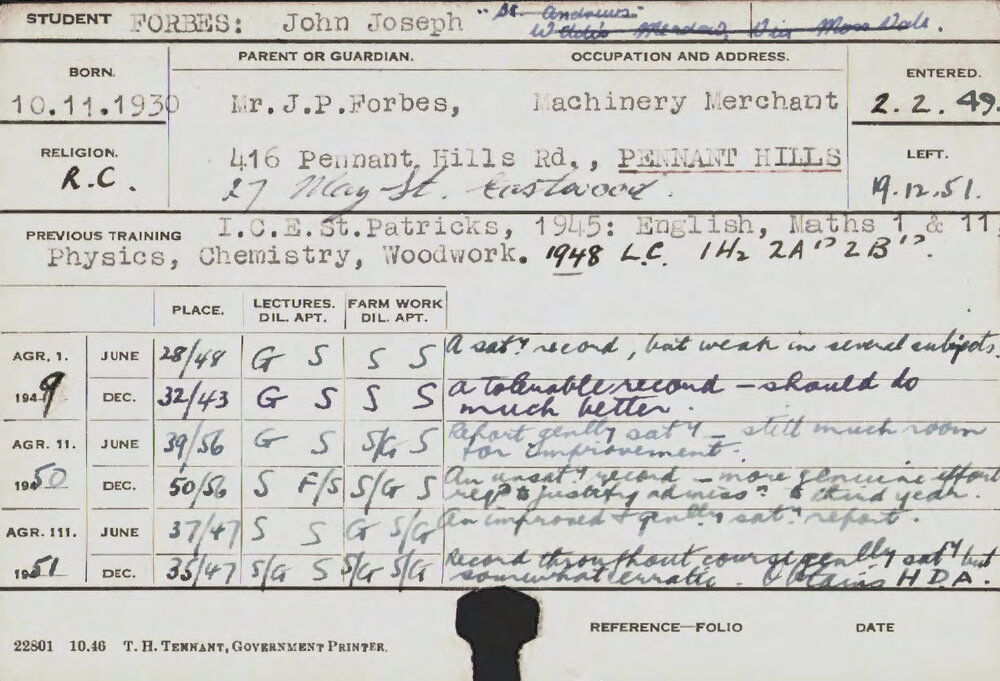 STUDENT FORBES: John Joseph "St. Andrews"
Meadow, Via Moss Vale.
BORN. PARENT OR GUARDIAN. OCCUPATION AND ADDRESS. ENTERED.
10.11.1930 Mr.J.P.Forbes, Machinery Merchant 2.2.49.
RELIGION. 416 Pennant Hills Rd., PENNANT HILLS LEFT.
R.C. 27 May St. Eastwood. 19.12.51.
PREVIOUS TRAINING I.C.E.St.Patricks, 1945: English, Maths 1 & 11,
Physics, Chemistry, Woodwork. 1948 L.C. 1H2 2A's 2B's.
PLACE. LECTURES. FARM WORK
DIL. APT. DIL. APT.
AGR. I. JUNE 28/48 G S S S A saty record, but weak in several subjects.
1949 DEC. 32/43 G S S S A tolerable record - should do
much better.
AGR. II. JUNE 39/56 G S S/G S Report genlly saty - still much room
for improvement.
1950 DEC. 50/56 S F/S S/G S An unsaty record - more genuine effort
reqd to justify admissn to third year.
AGR. III. JUNE 37/47 S S G S/G An improved & genlly saty report.
1951 DEC. 35/47 S/G S S/G S/G Record throughout course genlly saty but
somewhat erratic. Obtains H.D.A.
REFERENCE—FOLIO DATE
22801 10.46 T. H. TENNANT, GOVERNMENT PRINTER.